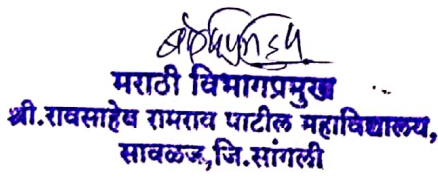 मराठी विभागप्रमुख
श्री.रावसाहेब रामराव पाटील महाविद्यालय,
सावळज,जि.सांगली